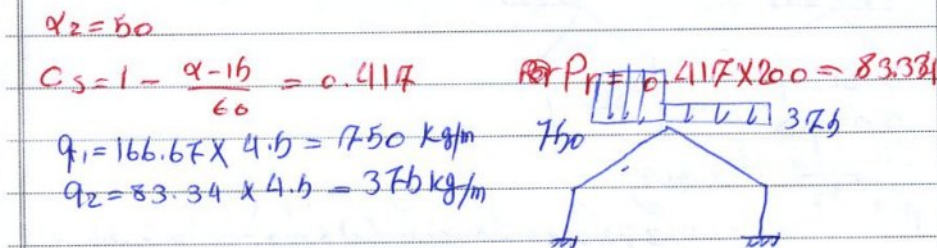 α2 = 50
Cs = 1 - (α-15)/60 = 0.417 Pr = 0.417×200 = 83.334
q1 = 166.67 × 4.5 = 750 kg/m
q2 = 83.34 × 4.5 = 375 kg/m
750
375